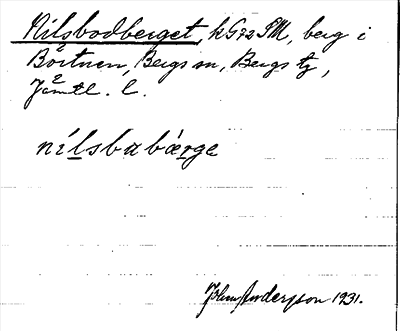 Nilsbodberget, kG22SM, berg i
Börtnen, Bergs sn, Bergs tg,
Jämtl. l.
nílsbabǽrge
Andersson 1931.